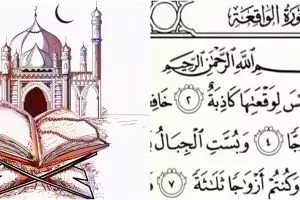 ورة الواقعة
ـم الله الرحمن الرحيم
س لوقعتها كاذبة ٢ خافـ
ـا ٤ وبست الجبال بـ
وكنتم أزواجا ثلاثة ٧